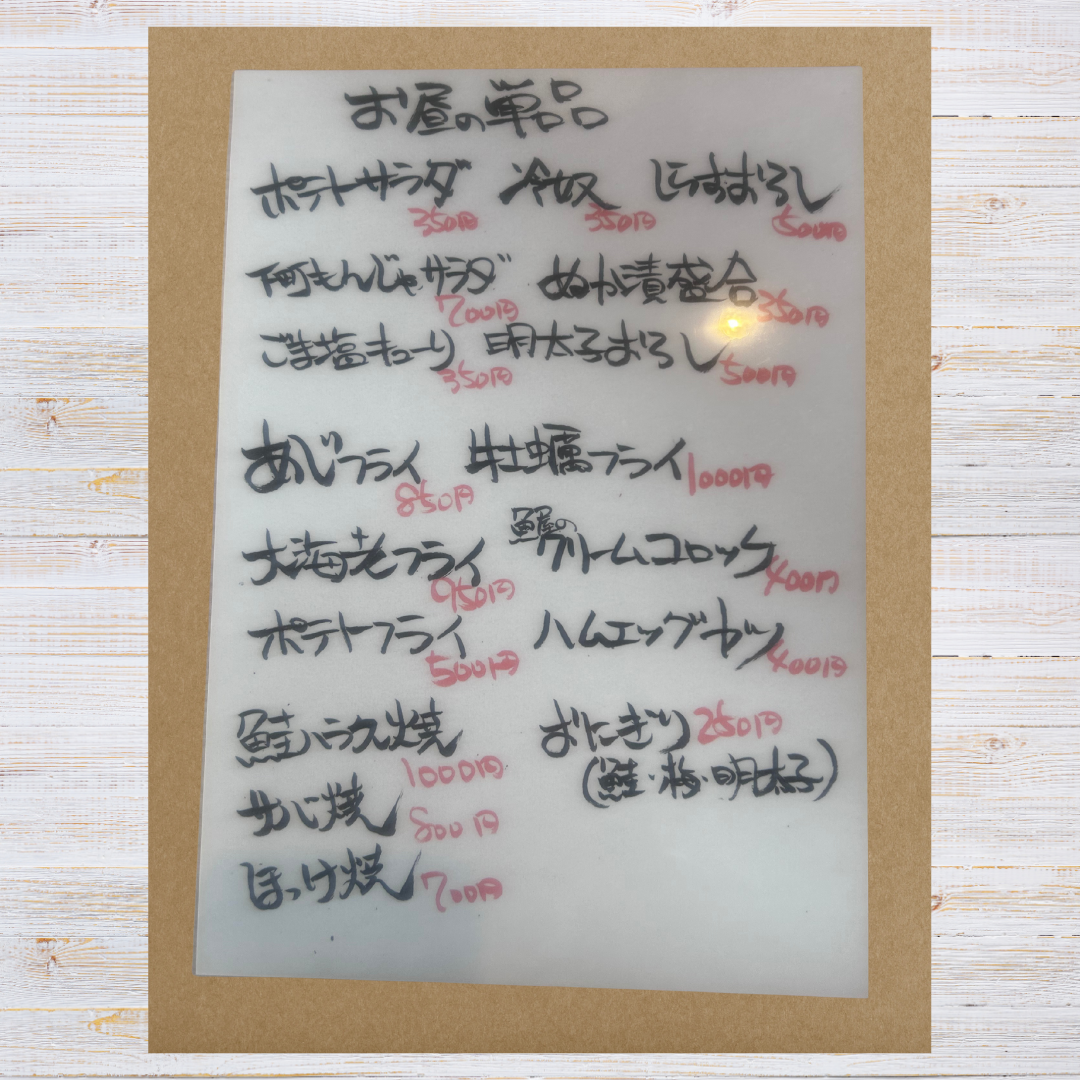 お昼の単品
ポテトサラダ 冷奴 じゃこおろし
350円 350円 500円
何もんじゃサラダ ぬか漬盛合
700円 350円
ごま塩キューリ 明太子おろし
350円 500円
あじフライ 牡蠣フライ 1000円
850円
大海老フライ 魚屋のクリームコロッケ
950円 400円
ポテトフライ ハムエッグカツ
500円 400円
鮭ハラス焼 おにぎり 250円
1000円 (鮭・梅・明太子)
サバ焼 800円
ほっけ焼 700円